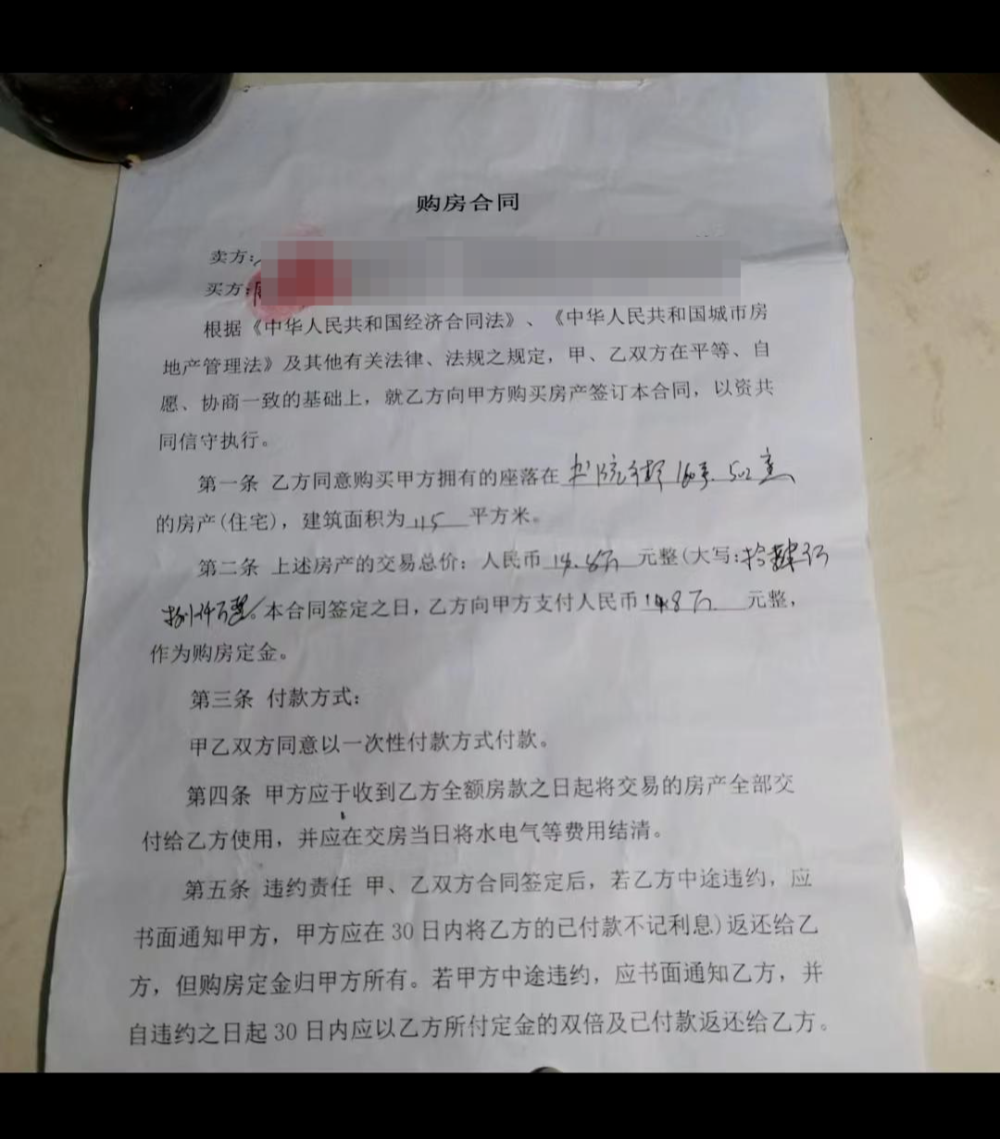 购房合同
卖方:
买方:
根据《中华人民共和国经济合同法》、《中华人民共和国城市房
地产管理法》及其他有关法律、法规之规定，甲、乙双方在平等、自
愿、协商一致的基础上，就乙方向甲方购买房产签订本合同，以资共
同信守执行。
第一条 乙方同意购买甲方拥有的座落在 书院街 502室
的房产(住宅)，建筑面积为 平方米。
第二条 上述房产的交易总价：人民币 14.8万 元整(大写:拾肆万
捌仟 本合同签定之日，乙方向甲方支付人民币 14.8万 元整，
作为购房定金。
第三条 付款方式：
甲乙双方同意以一次性付款方式付款。
第四条 甲方应于收到乙方全额房款之日起将交易的房产全部交
付给乙方使用，并应在交房当日将水电气等费用结清。
第五条 违约责任 甲、乙双方合同签定后，若乙方中途违约，应
书面通知甲方，甲方应在 30 日内将乙方的已付款不记利息)返还给乙
方，但购房定金归甲方所有。若甲方中途违约，应书面通知乙方，并
自违约之日起 30 日内应以乙方所付定金的双倍及已付款返还给乙方。